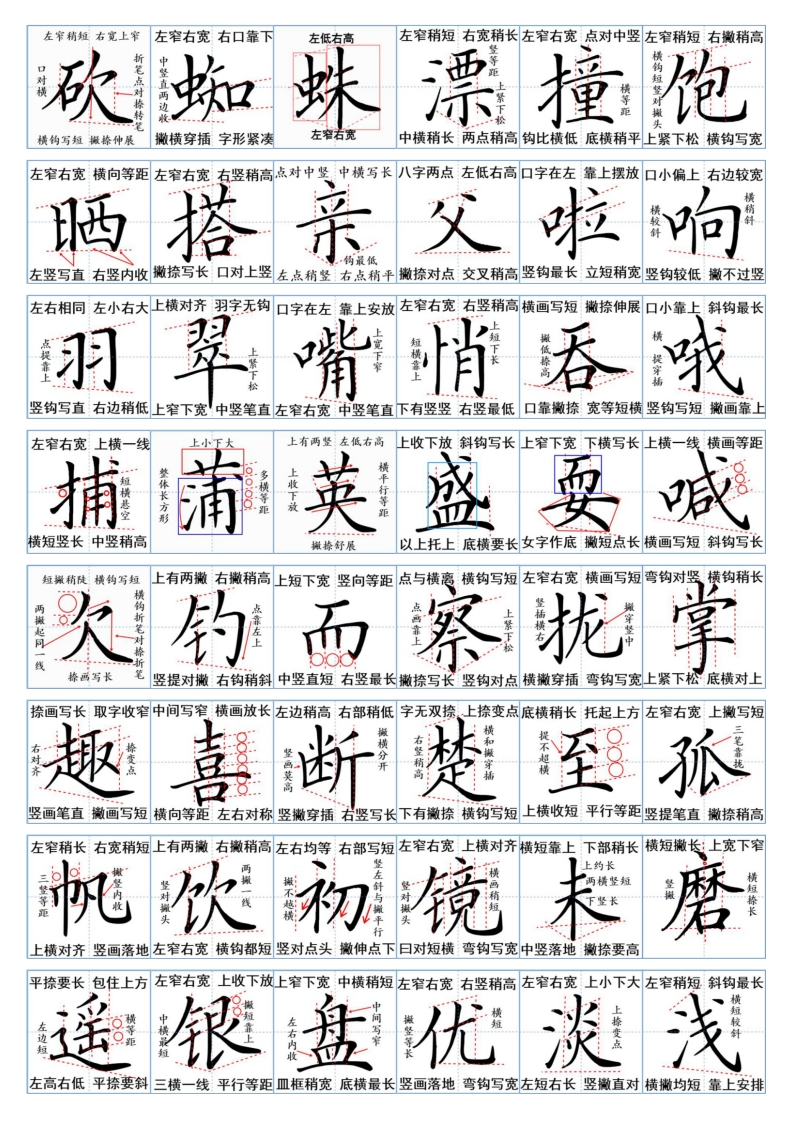 左窄稍短 右宽上窄
口对横
砍
折笔点对捺转笔
横钩写短 撇捺伸展
左窄右宽 右口靠下
中竖直两边收
蜘
撇横穿插 字形紧凑
左低右高
蛛
左窄右宽
左窄稍短 右宽稍长
漂
竖等距
上紧下松
中横稍长 两点稍高
左窄右宽 点对中竖
撞
横等距
钩比横低 底横稍平
左窄稍短 右撇稍高
横钩短竖对撇头
饱
上紧下松 横钩写宽
左窄右宽 横向等距
晒
左竖写直 右竖内收
左窄右宽 右竖稍高
搭
撇捺写长 口对上竖
点对中竖 中横写长
亲
钩最低
左点稍竖 右点稍平
八字两点 左低右高
父
撇捺对点 交叉稍高
口字在左 靠上摆放
啦
竖钩最长 立短稍宽
口小偏上 右边较宽
横较斜
响
横稍斜
竖钩较低 撇不过竖
左右相同 左小右大
点提靠上
羽
竖钩写直 右边稍低
上横对齐 羽字无钩
翠
上紧下松
上窄下宽 中竖笔直
口字在左 靠上安放
嘴
上宽下窄
左窄右宽 中竖笔直
左窄右宽 右竖稍高
短横靠上
悄
上短下长
下有竖竖 右竖最低
横画写短 撇捺伸展
撇低捺高
吞
口靠撇捺 宽等短横
口小靠上 斜钩最长
横 提穿插
哦
竖钩写短 撇画靠上
左窄右宽 上横一线
捕
短横悬空
横短竖长 中竖稍高
上小下大
整体长方形
蒲
多横等距
上有两竖 左低右高
上收下放
英
横平行等距
撇捺舒展
上收下放 斜钩写长
盛
以上托上 底横要长
上窄下宽 下横写长
耍
女字作底 撇短点长
上横一线 横画等距
喊
横画写短 斜钩写长
短撇稍陡 横钩写短
两撇起同一线
欠
横钩折笔对捺折笔
捺画写长
上有两撇 右撇稍高
钓
点靠左上
竖提对撇 右钩稍斜
上短下宽 竖向等距
而
中竖直短 右竖最长
点与横离 横钩写短
点画靠上
察
上紧下松
撇捺写长 竖钩对点
左窄右宽 横画写短
竖插横右
拢
撇穿竖中
横撇穿插 弯钩写宽
弯钩对竖 横钩稍长
掌
上紧下松 底横对上
捺画写长 取字收窄
右对齐
趣
捺变点
竖画笔直 撇画写短
中间写窄 横画放长
喜
横向等距 左右对称
左边稍高 右部稍低
竖画莫高
断
撇横分开
竖撇穿插 右竖写长
字无双捺 上捺变点
右竖稍高
楚
横和撇穿插
下有撇捺 横钩写短
底横稍长 托起上方
提不超横
至
上横收短 平行等距
左窄右宽 上撇写短
孤
三笔靠拢
竖提笔直 撇捺稍高
左窄稍长 右宽稍短
三竖等距
帆
撇竖内收
上横对齐 竖画落地
上有两撇 右撇稍高
竖对撇头
饮
两撇一线
左窄右宽 横钩都短
左右均等 右部写短
撇不越横
初
竖左斜与撇平行
竖对点头 撇伸点下
左窄右宽 上横对齐
竖对撇头
镜
横画稍短
曰对短横 弯钩写宽
横短靠上 下部稍长
未
上约长
两横竖短
下竖长
中竖落地 撇捺要高
横短撇长 上宽下窄
竖撇
磨
横短捺长
平捺要长 包住上方
左边短
遥
横等距
左高右低 平捺要斜
左窄右宽 上收下放
中横最短
银
撇短靠上
三横一线 平行等距
上窄下宽 中横稍短
左右内收
盘
中间写窄
皿框稍宽 底横最长
左窄右宽 右竖稍高
撇竖等长
优
横短
竖画落地 弯钩写宽
左窄右宽 上小下大
淡
上捺变点
左短右长 竖撇直对
左窄稍短 斜钩最长
浅
横短较斜
横撇均短 靠上安排